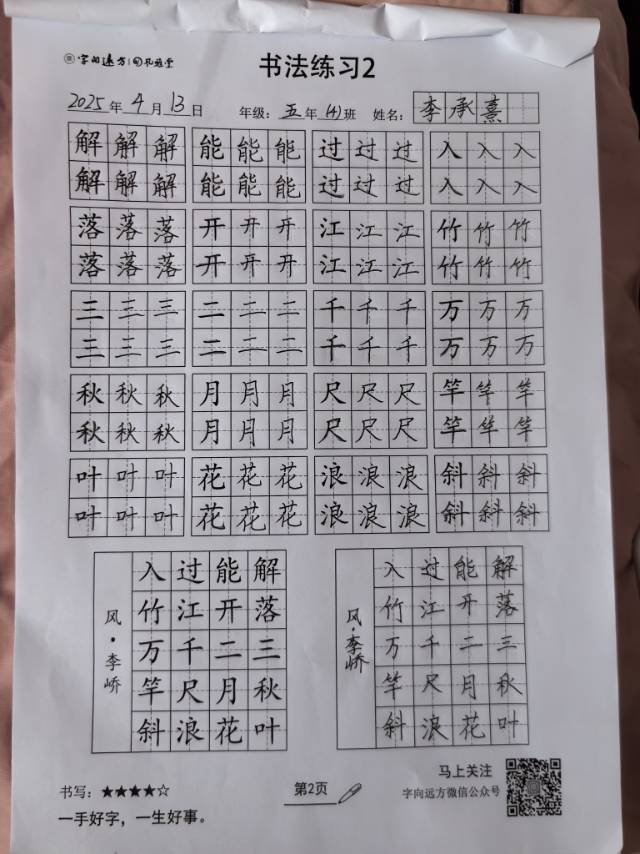 字向远方
书法练习2
2025年4月13日 年级：五年(4)班 姓名：李承熹
解解解 能能能 过过过 入入入
解解解 能能能 过过过 入入入
落落落 开开开 江江江 竹竹竹
落落落 开开开 江江江 竹竹竹
三三三 二二二 千千千 万万万
三三三 二二二 千千千 万万万
秋秋秋 月月月 尺尺尺 竿竿竿
秋秋秋 月月月 尺尺尺 竿竿竿
叶叶叶 花花花 浪浪浪 斜斜斜
叶叶叶 花花花 浪浪浪 斜斜斜
解落三秋叶
能开二月花
过江千尺浪
入竹万竿斜
风·李峤
解落三秋叶
能开二月花
过江千尺浪
入竹万竿斜
风·李峤
书写：★★★★☆
一手好字，一生好事。
第2页
马上关注
字向远方微信公众号